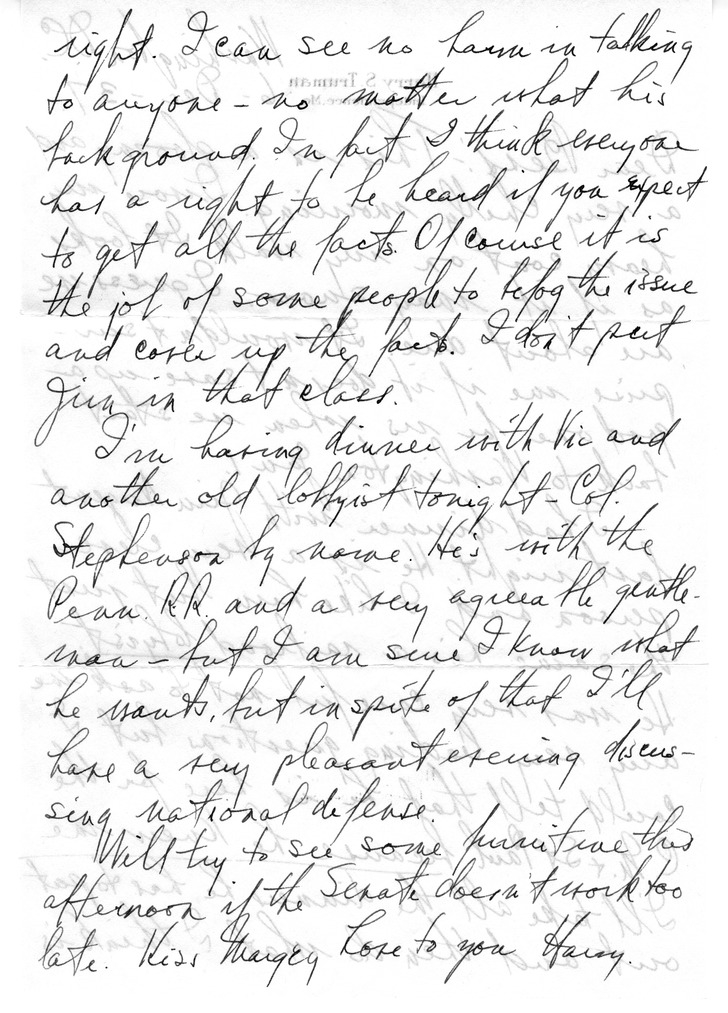 right. I can see no harm in talking
to anyone – no matter what his
background. In fact I think everyone
has a right to be heard if you expect
to get all the facts. Of course it is
the job of some people to befog the issue
and cover up the facts. I don't put
Jim in that class.
I'm having dinner with Vic and
another old lobbyist tonight – Col.
Stephenson by name. He's with the
Penn. R.R. and a very agreeable gentle-
man – but I am sure I know what
he wants, but in spite of that I'll
have a very pleasant evening discus-
sing national defense.
Will try to see some furniture this
afternoon if the Senate doesn't work too
late. Kiss Margey Love to you Harry.